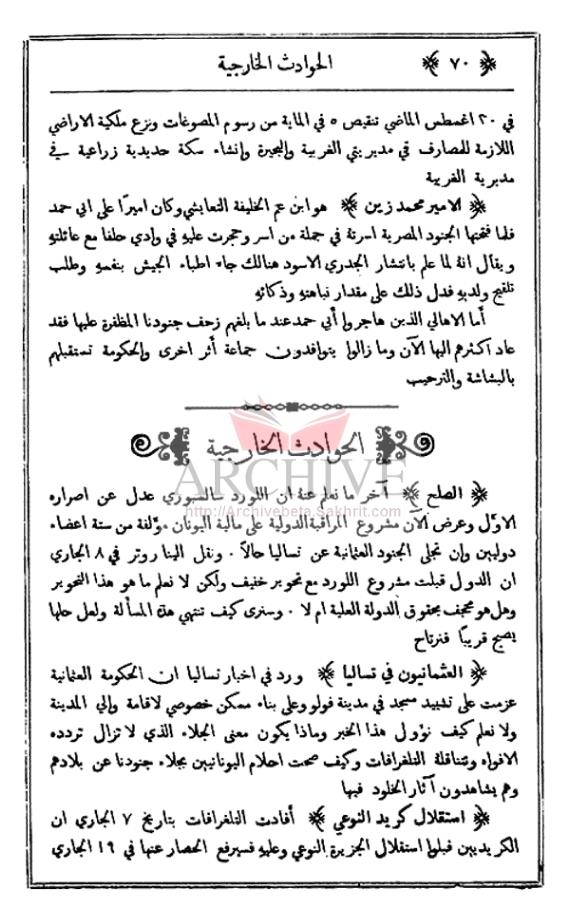 ﴿ ٧٠ ﴾ الحوادث الخارجية
في ٢٠ اغسطس الماضي تنقيص ٥ في الماية من رسوم المصوغات وبنزع ملكية الاراضي
اللازمة للمصارف في مديريتي الغربية والبحيرة وإنشاء سكة حديدية زراعية في
مديرية الغربية
﴿ الامير محمد زين ﴾ هو ابن عم الخليفة التعايشي وكان اميرًا على ابي حمد
فلما فتحتها الجنود المصرية اسرتهُ في جملة من اسر وحجرت عليهِ في وادي حلفا مع عائلتهِ
ويقال انهُ لما علم بانتشار الجدري الاسود هنالك جاء اطباء الجيش بنفسهِ وطلب
تلقيح ولديهِ فدل ذلك على مقدار نباهتهِ وذكائهِ
أما الاهالي الذين هاجروا أبي حمد عند ما بلغهم زحف جنودنا المظفرة عليها فقد
عاد اكثرهم اليها الآن وما زالوا يتوافدون جماعة أثر اخرى والحكومة تستقبلهم
بالبشاشة والترحيب
الحوادث الخارجية
ARCHIVE
http://Archivebeta.Sakhrit.com
﴿ الصلح ﴾ آخر ما نعلم عنهُ ان اللورد سالسبوري عدل عن اصراره
الاوّل وعرض الآن مشروع المراقبة الدولية على مالية اليونان مؤلفة من ستة اعضاء
دوليين وإن تجلى الجنود العثمانية عن تساليا حالاً . ونقل الينا روتر في ٨ الجاري
ان الدول قبلت مشروع اللورد مع تحوير خفيف ولكن لا نعلم ما هو هذا التحوير
وهل هو مجحف بحقوق الدولة العلية ام لا . وسنرى كيف تنتهي هذهِ المسألة ولعل حلها
يصبح قريبًا فنرتاح
﴿ العثمانيون في تساليا ﴾ ورد في اخبار تساليا ان الحكومة العثمانية
عزمت على تشييد مسجد في مدينة فولو وعلى بناء ممكن خصوصي لاقامة والي المدينة
ولا نعلم كيف نؤول هذا الخبر وماذا يكون معنى الجلاء الذي لا تزال تردده
الافواه وتتناقلهُ التلغرافات وكيف صحت احلام اليونانيين بجلاء جنودنا عن بلادهم
وهم يشاهدون آثار الخلود فيها
﴿ استقلال كريد النوعي ﴾ أفادت التلغرافات بتاريخ ٧ الجاري ان
الكريديين قبلوا استقلال الجزيرة النوعي وعليهِ فسيرفع الحصار عنها في ١٩ الجاري